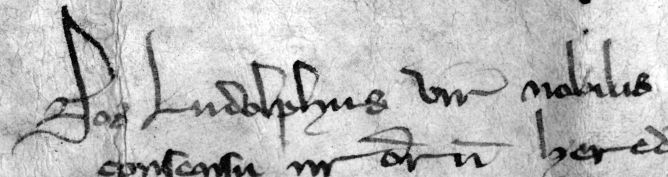 Nos Ludolphus vir nobilis
consensu nr̄ōrū hered